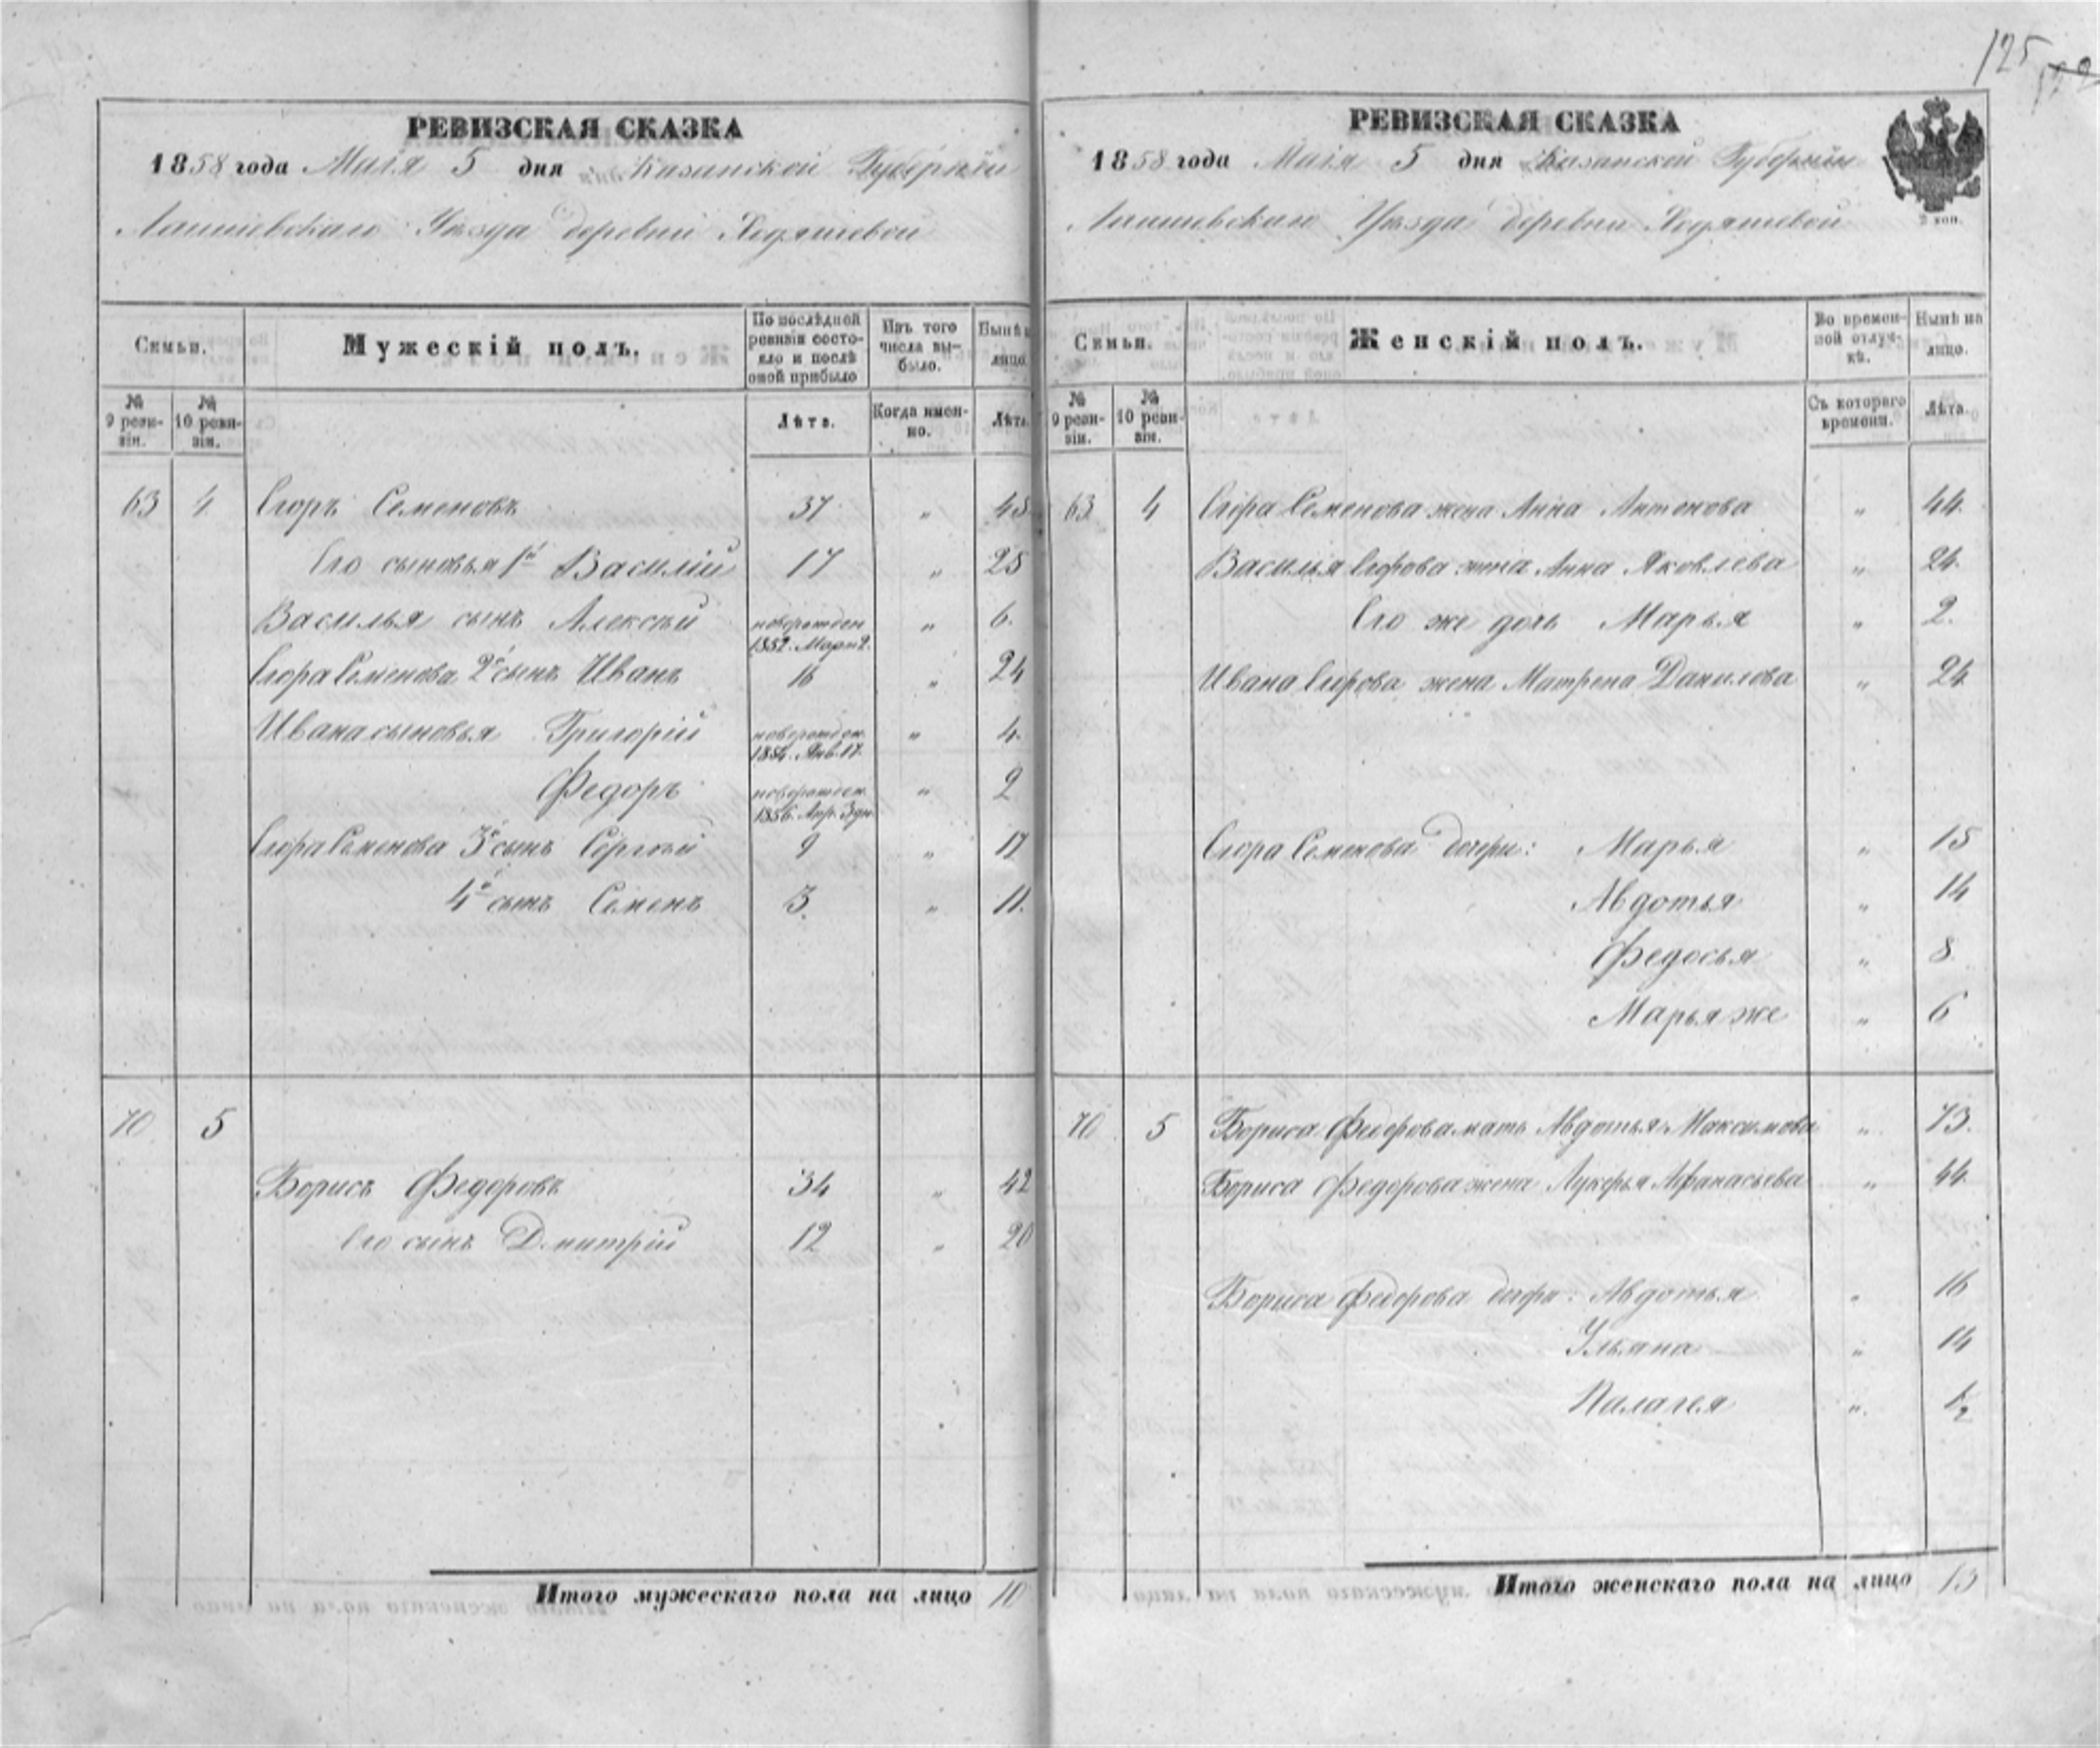 125
РЕВИЗСКАЯ СКАЗКА
1858 года Маія 5 дня Казанской Губерніи
Лаишевскаго Уѣзда деревни Ходяшевой
Семьи.
Мужескій полъ.
По послѣдней ревизіи состояло и послѣ оной прибыло
Изъ того числа выбыло.
Нынѣ
лицо.
№ 9 ревизіи.
№ 10 ревизіи.
Лѣта.
Когда именно.
Лѣта.
63 4 Егоръ Семеновъ 37 „ 45
Его сыновья 1й Василій 17 „ 25
Василья сынъ Алексѣй новорожден 1852. Март 2. „ 6.
Егора Семенова 2й сынъ Иванъ 16 „ 24
Ивана сыновья Григорій новорожден. 1854. Янв. 17. „ 4.
Федоръ новорожден. 1856. Апр. 3 дн. „ 2
Егора Семенова 3й сынъ Сергѣй 9 „ 17
4й сынъ Семенъ 3. „ 11.
70 5
Борисъ Федоровъ 34 „ 42
Его сынъ Дмитрій 12 „ 20
Итого мужескаго пола на лицо 10
РЕВИЗСКАЯ СКАЗКА
1858 года Маія 5 дня Казанской Губерніи
Лаишевскаго Уѣзда деревни Ходяшевой
2 коп.
Семьи.
Женскій полъ.
Во временной отлучкѣ.
Нынѣ на лицо.
№ 9 ревизіи.
№ 10 ревизіи.
Съ котораго времени.
Лѣта.
63 4 Егора Семенова жена Анна Антонова „ 44.
Василья Егорова жена Анна Яковлева „ 24.
Его же дочь Марья „ 2.
Ивана Егорова жена Матрена Данилова „ 24
Егора Семенова дочери: Марья „ 15
Авдотья „ 14
Федосья „ 8
Марья же „ 6
70 5 Бориса Федорова мать Авдотья Максимова „ 73.
Бориса Федорова жена Лукерья Афанасьева „ 44.
Бориса Федорова дочери: Авдотья „ 16
Ульяна „ 14
Палагея „ ½
Итого женскаго пола на лицо 13